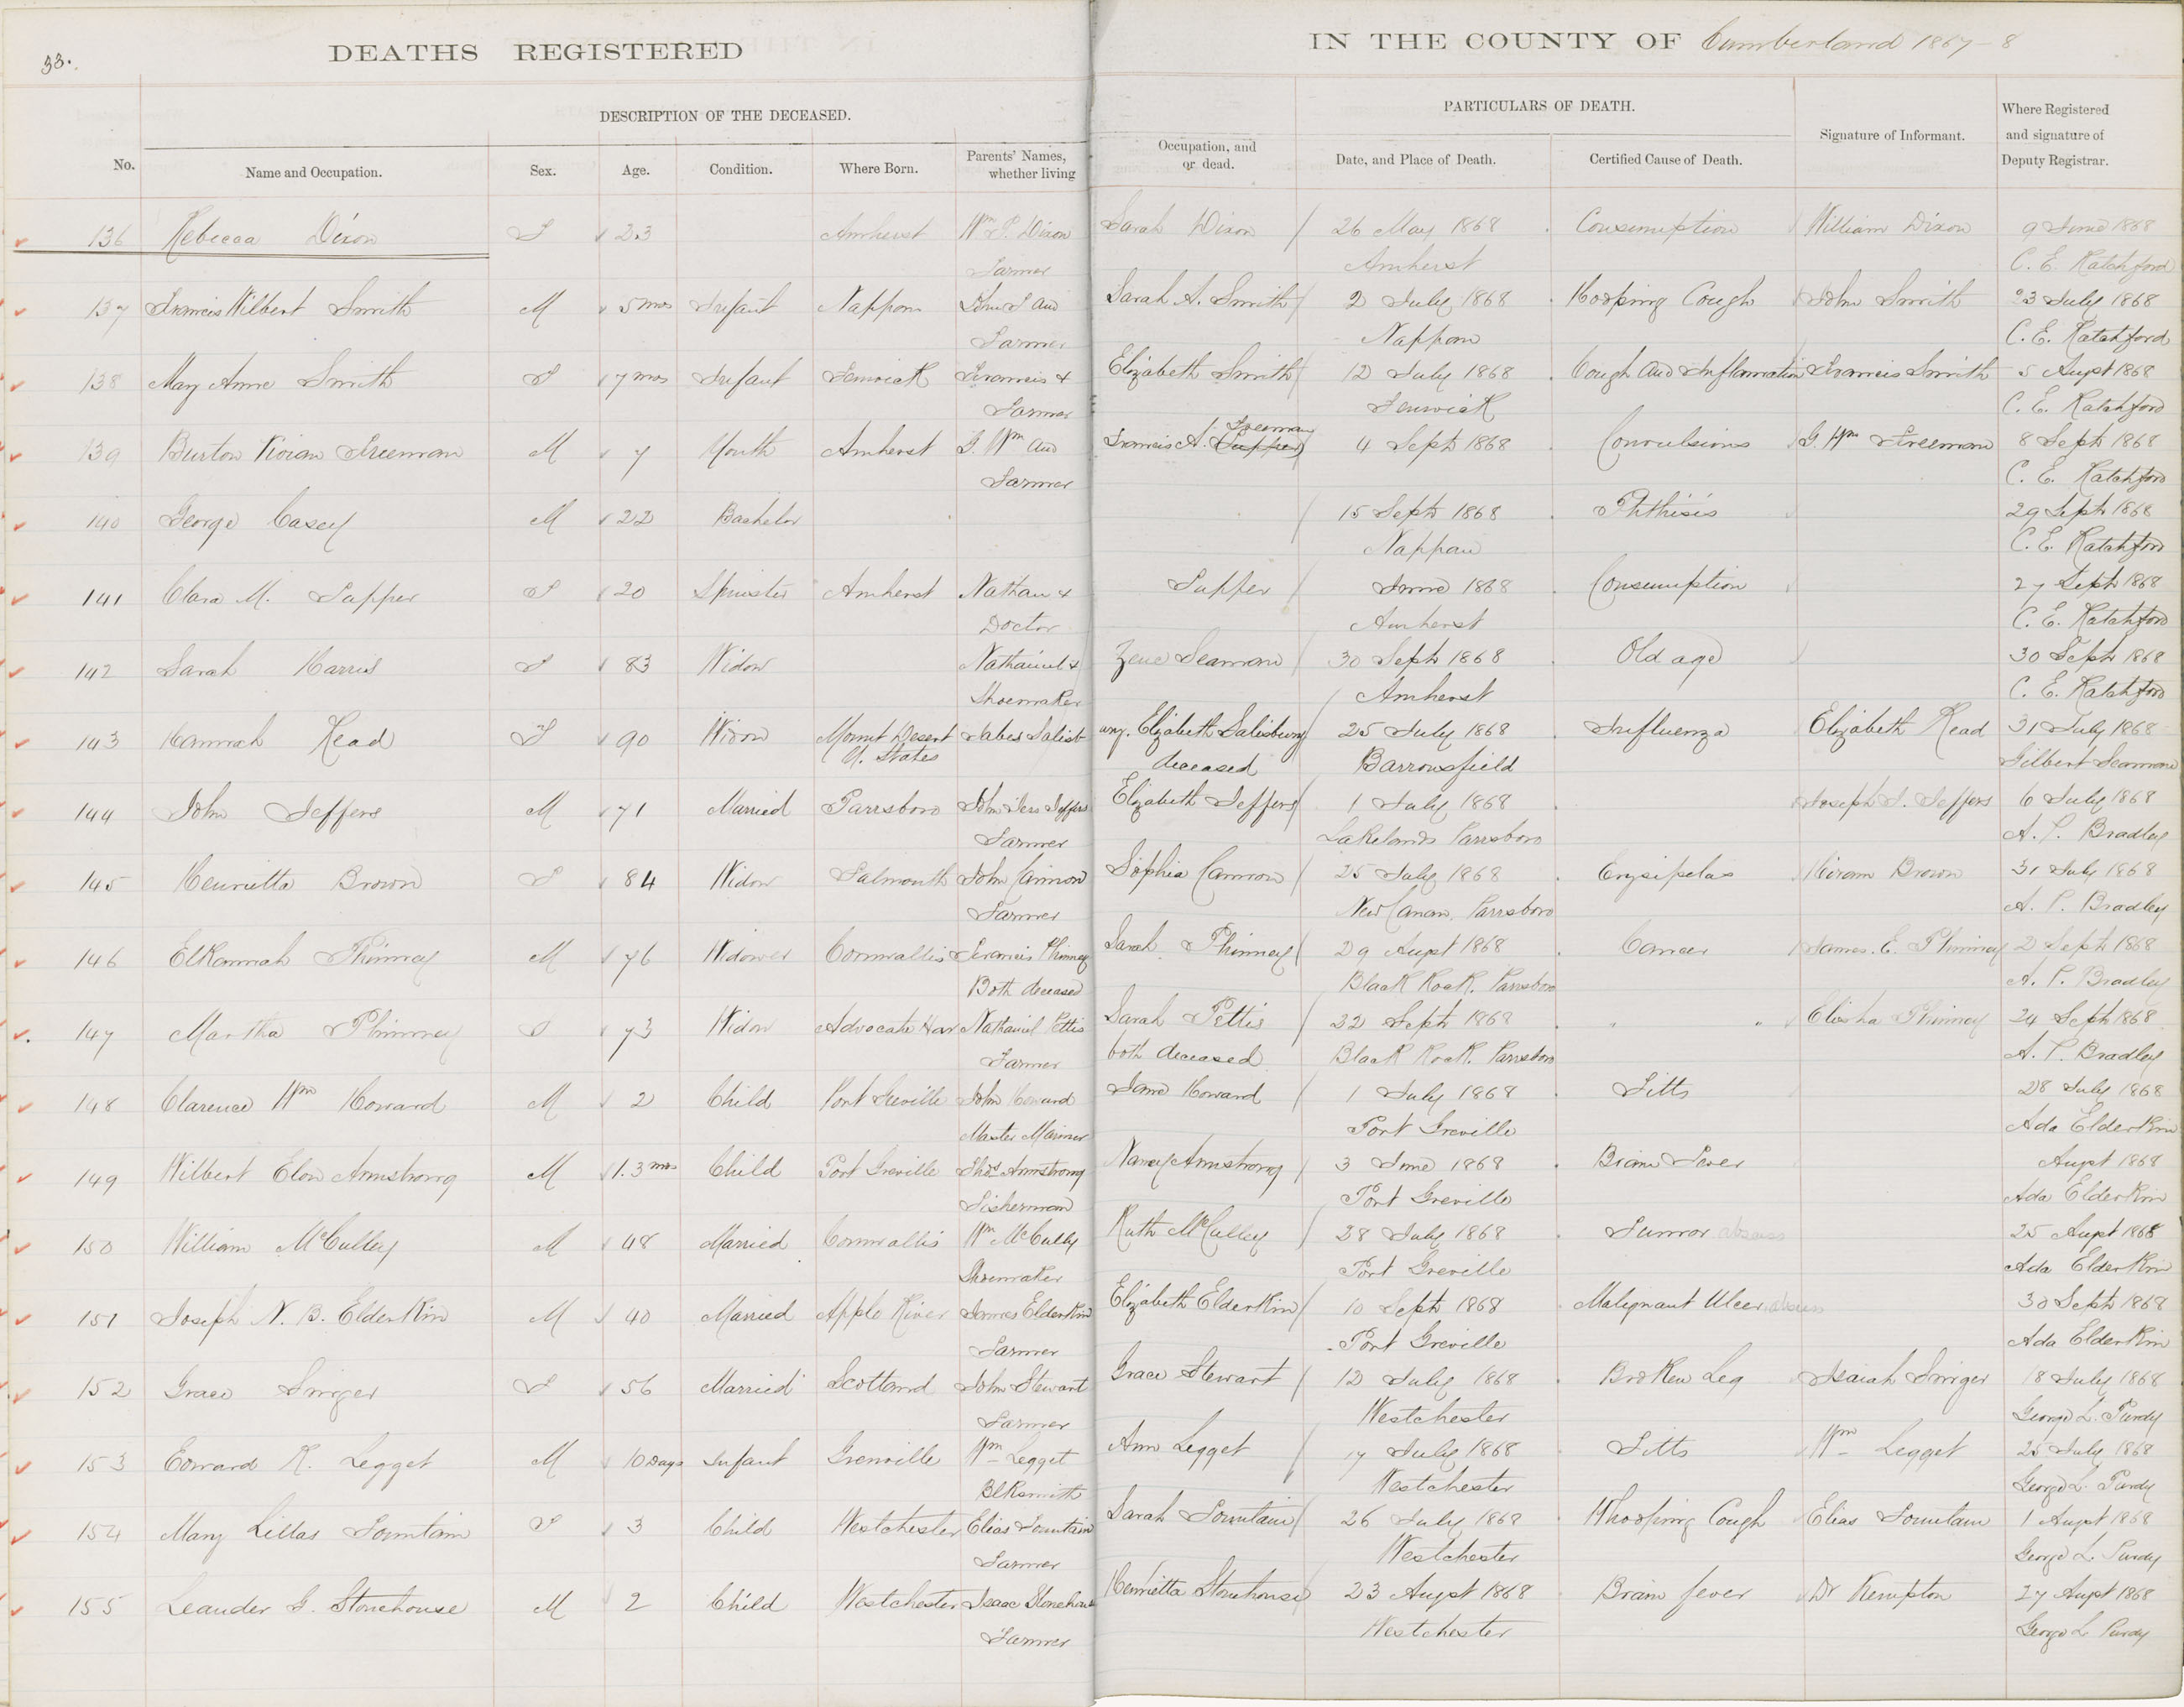 33.
DEATHS REGISTERED
IN THE COUNTY OF Cumberland 1867-8
DESCRIPTION OF THE DECEASED.
PARTICULARS OF DEATH.
No.
Name and Occupation.
Sex.
Age.
Condition.
Where Born.
Parents' Names, whether living
Occupation, and or dead.
Date, and Place of Death.
Certified Cause of Death.
Signature of Informant.
Where Registered and signature of Deputy Registrar.
136 Rebecca Dixon F 23 Amherst Wm P. Dixon Sarah Dixon 26 May 1868 Consumption William Dixon 9 June 1868
Farmer Amherst C. E. Ratchford
137 Francis Wilbert Smith M 5 mos Infant Nappan John and Sarah A. Smith 2 July 1868 Hooping Cough John Smith 23 July 1868
Farmer Nappan C. E. Ratchford
138 May Anne Smith F 7 mos Infant Fenwick Francis & Elizabeth Smith 12 July 1868 Cough and Inflamation Francis Smith 5 Augst 1868
Farmer Fenwick C. E. Ratchford
139 Burton Vivian Freeman M 7 Youth Amherst G. Wm and Francis A. (Tupper) Freeman 4 Sept 1868 Convulsions G. Wm Freeman 8 Sept 1868
Farmer C. E. Ratchford
140 George Casey M 22 Bachelor 15 Sept 1868 Phthisis 29 Sept 1868
Nappan C. E. Ratchford
141 Clara M. Tupper F 20 Spinster Amherst Nathan & Tupper June 1868 Consumption 27 Sept 1868
Doctor Amherst C. E. Ratchford
142 Sarah Harris F 83 Widow Nathaniel & Seamans 30 Sept 1868 Old age 30 Sept 1868
Shoemaker Amherst C. E. Ratchford
143 Hannah Read F 90 Widow Mount Desert Jabes Salisbury. Elizabeth Salisbury 25 July 1868 Influenza Elizabeth Read 31 July 1868
U. States deceased Barronsfield Gilbert Seamans
144 John Jeffers M 71 Married Parrsboro John Jeffers Elizabeth Jeffers 1 July 1868 Joseph J. Jeffers 6 July 1868
Farmer Lakelands Parrsboro A. P. Bradley
145 Henrietta Brown F 84 Widow Falmouth John Cannon Sophia Cannon 25 July 1868 Erysipelas Hiram Brown 31 July 1868
Farmer New Canan, Parrsboro A. P. Bradley
146 Elkannah Phinney M 76 Widower Cornwallis Francis Phinney Sarah Phinney 29 Augst 1868 Cancer James. E. Phinney 2 Sept 1868
Both deceased Black Rock. Parrsboro A. P. Bradley
147 Martha Phinney F 73 Widow Advocate Har Nathaniel Pettis Sarah Pettis 22 Sept 1868 " " Elisha Phinney 24 Sept 1868
Farmer both deceased Black Rock. Parrsboro A. P. Bradley
148 Clarence Wm Howard M 2 Child Port Greville John Howard Jane Howard 1 July 1868 Fitts 28 July 1868
Master Mariner Port Greville Ada Elderkin
149 Wilbert Elon Armstrong M 1.3 mos Child Port Greville Thos Armstrong Nancy Armstrong 3 June 1868 Brain Fever Augst 1868
Fisherman Port Greville Ada Elderkin
150 William McCulley M 48 Married Cornwallis Wm McCully Ruth McCulley 28 July 1868 Tumor absess 25 Augst 1868
Shoemaker Port Greville Ada Elderkin
151 Joseph N. B. Elderkin M 40 Married Apple River James Elderkin Elizabeth Elderkin 10 Sept 1868 Malignant Ulcer absess 30 Sept 1868
Farmer Port Greville Ada Elderkin
152 Grace Singer F 56 Married Scotland John Stewart Grace Stewart 12 July 1868 Broken Leg Isaiah Singer 18 July 1868
Farmer Westchester George L. Purdy
153 Edward R. Legget M 10 Days Infant Grenville Wm Legget Ann Legget 17 July 1868 Fitts Wm Legget 25 July 1868
Blksmith Westchester George L. Purdy
154 Mary Lillas Fountain F 3 Child Westchester Elias Fountain Sarah Fountain 26 July 1868 Whooping Cough Elias Fountain 1 Augst 1868
Farmer Westchester George L. Purdy
155 Leander G. Stonehouse M 2 Child Westchester Isaac Stonehouse Henrietta Stonehouse 23 Augst 1868 Brain fever Dr Kempton 27 Augst 1868
Farmer Westchester George L. Purdy